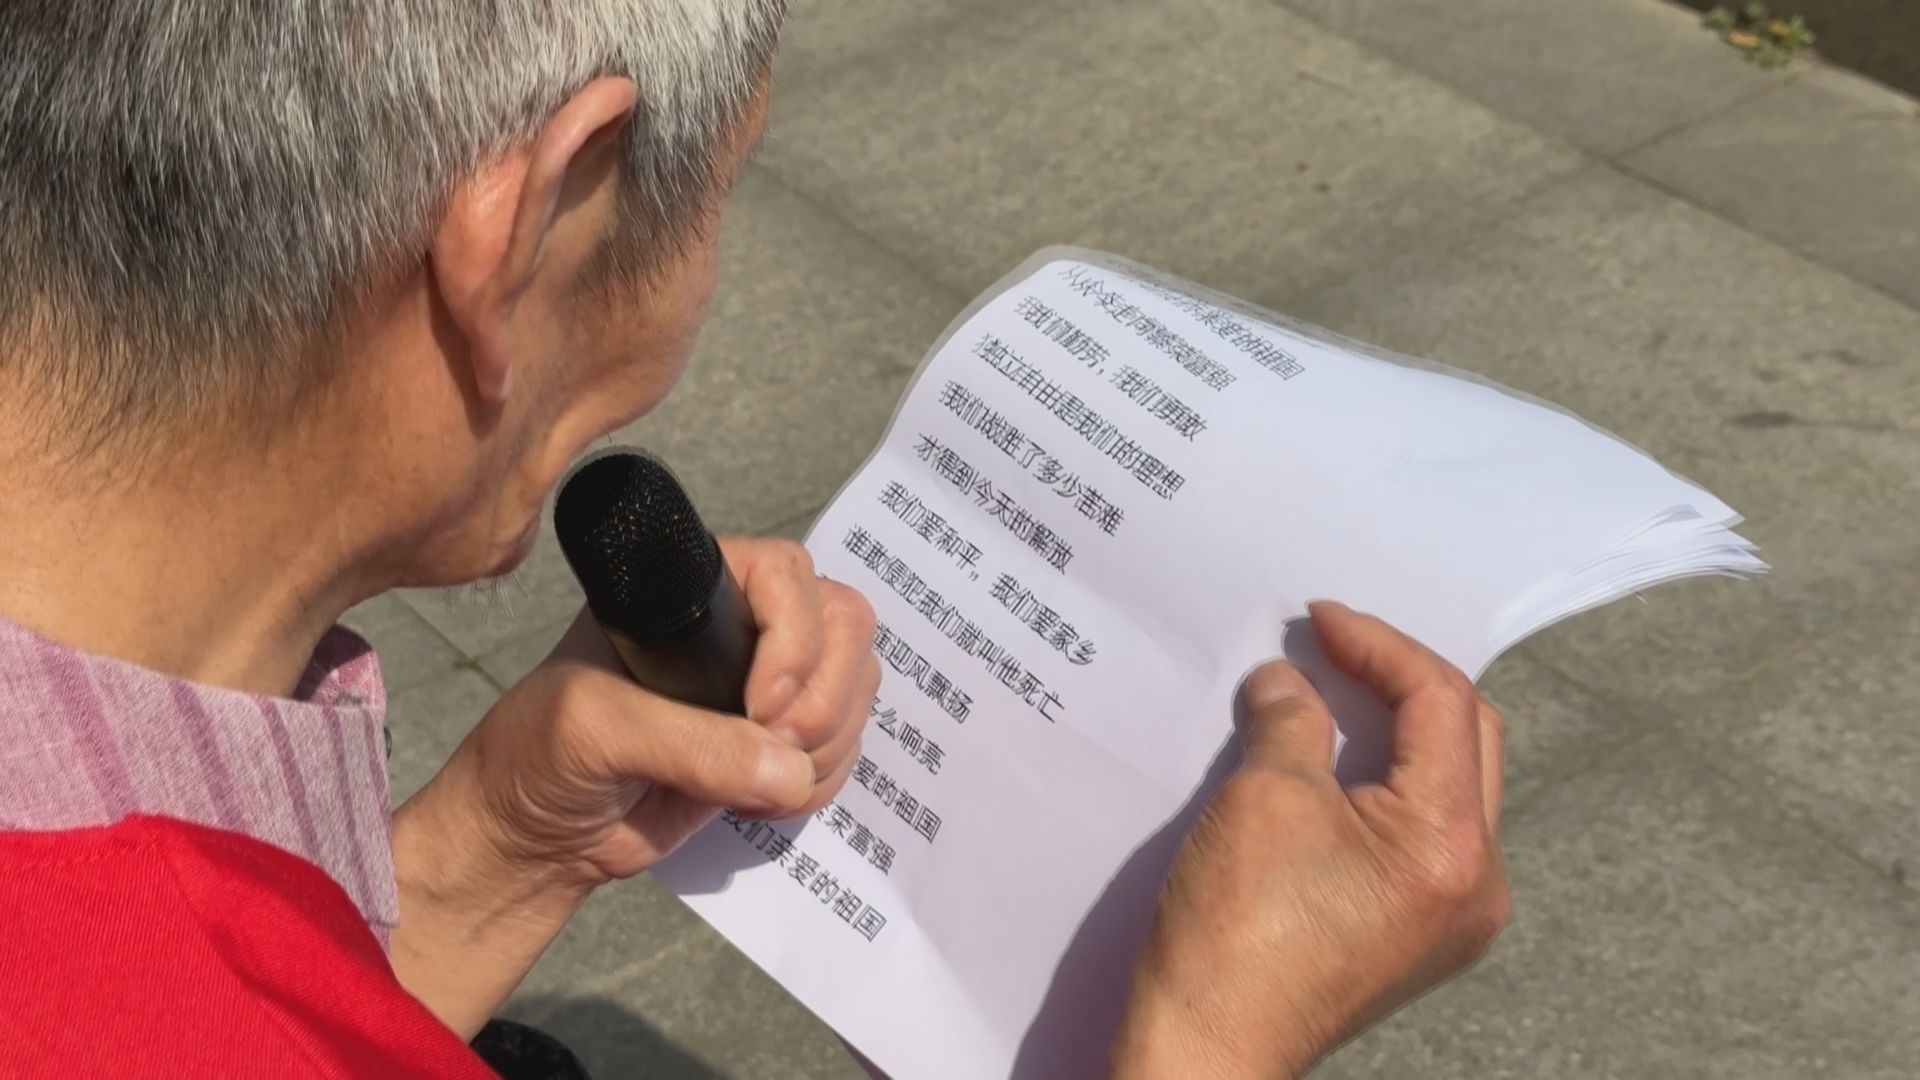 亲爱的祖国
从今走向繁荣富强
我们勤劳，我们勇敢
独立自由是我们的理想
我们战胜了多少苦难
才得到今天的解放
我们爱和平，我们爱家乡
谁敢侵犯我们就叫他死亡
迎风飘扬
多么响亮
爱的祖国
荣富强
我们亲爱的祖国